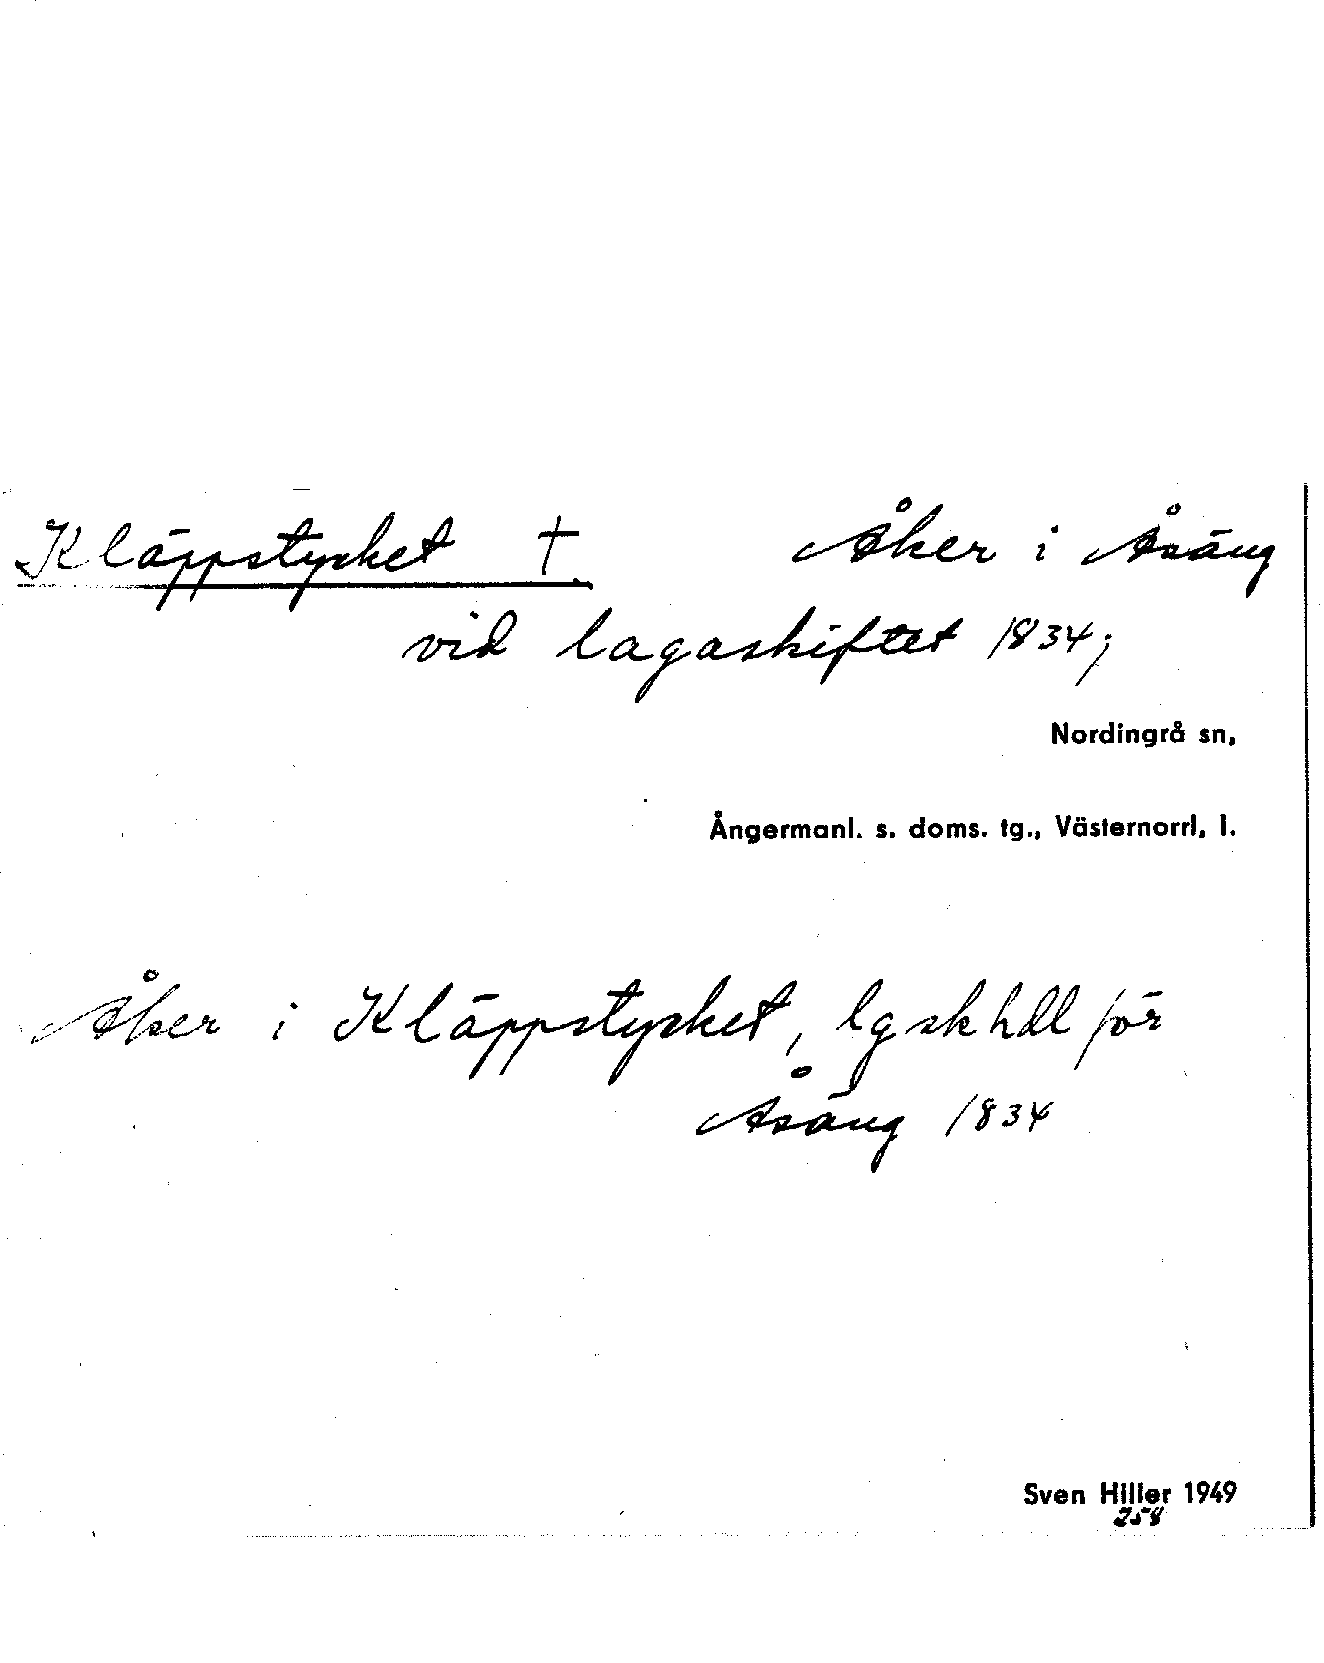 Kläppstycket † Åker i Åsäng
vid lagaskiftet 1834;
Nordingrå sn,
Ångermanl. s. doms. tg., Västernorrl. l.
Åker i Kläppstycket, lgskhdl för
Åsäng 1834
Sven Hiller 1949
258